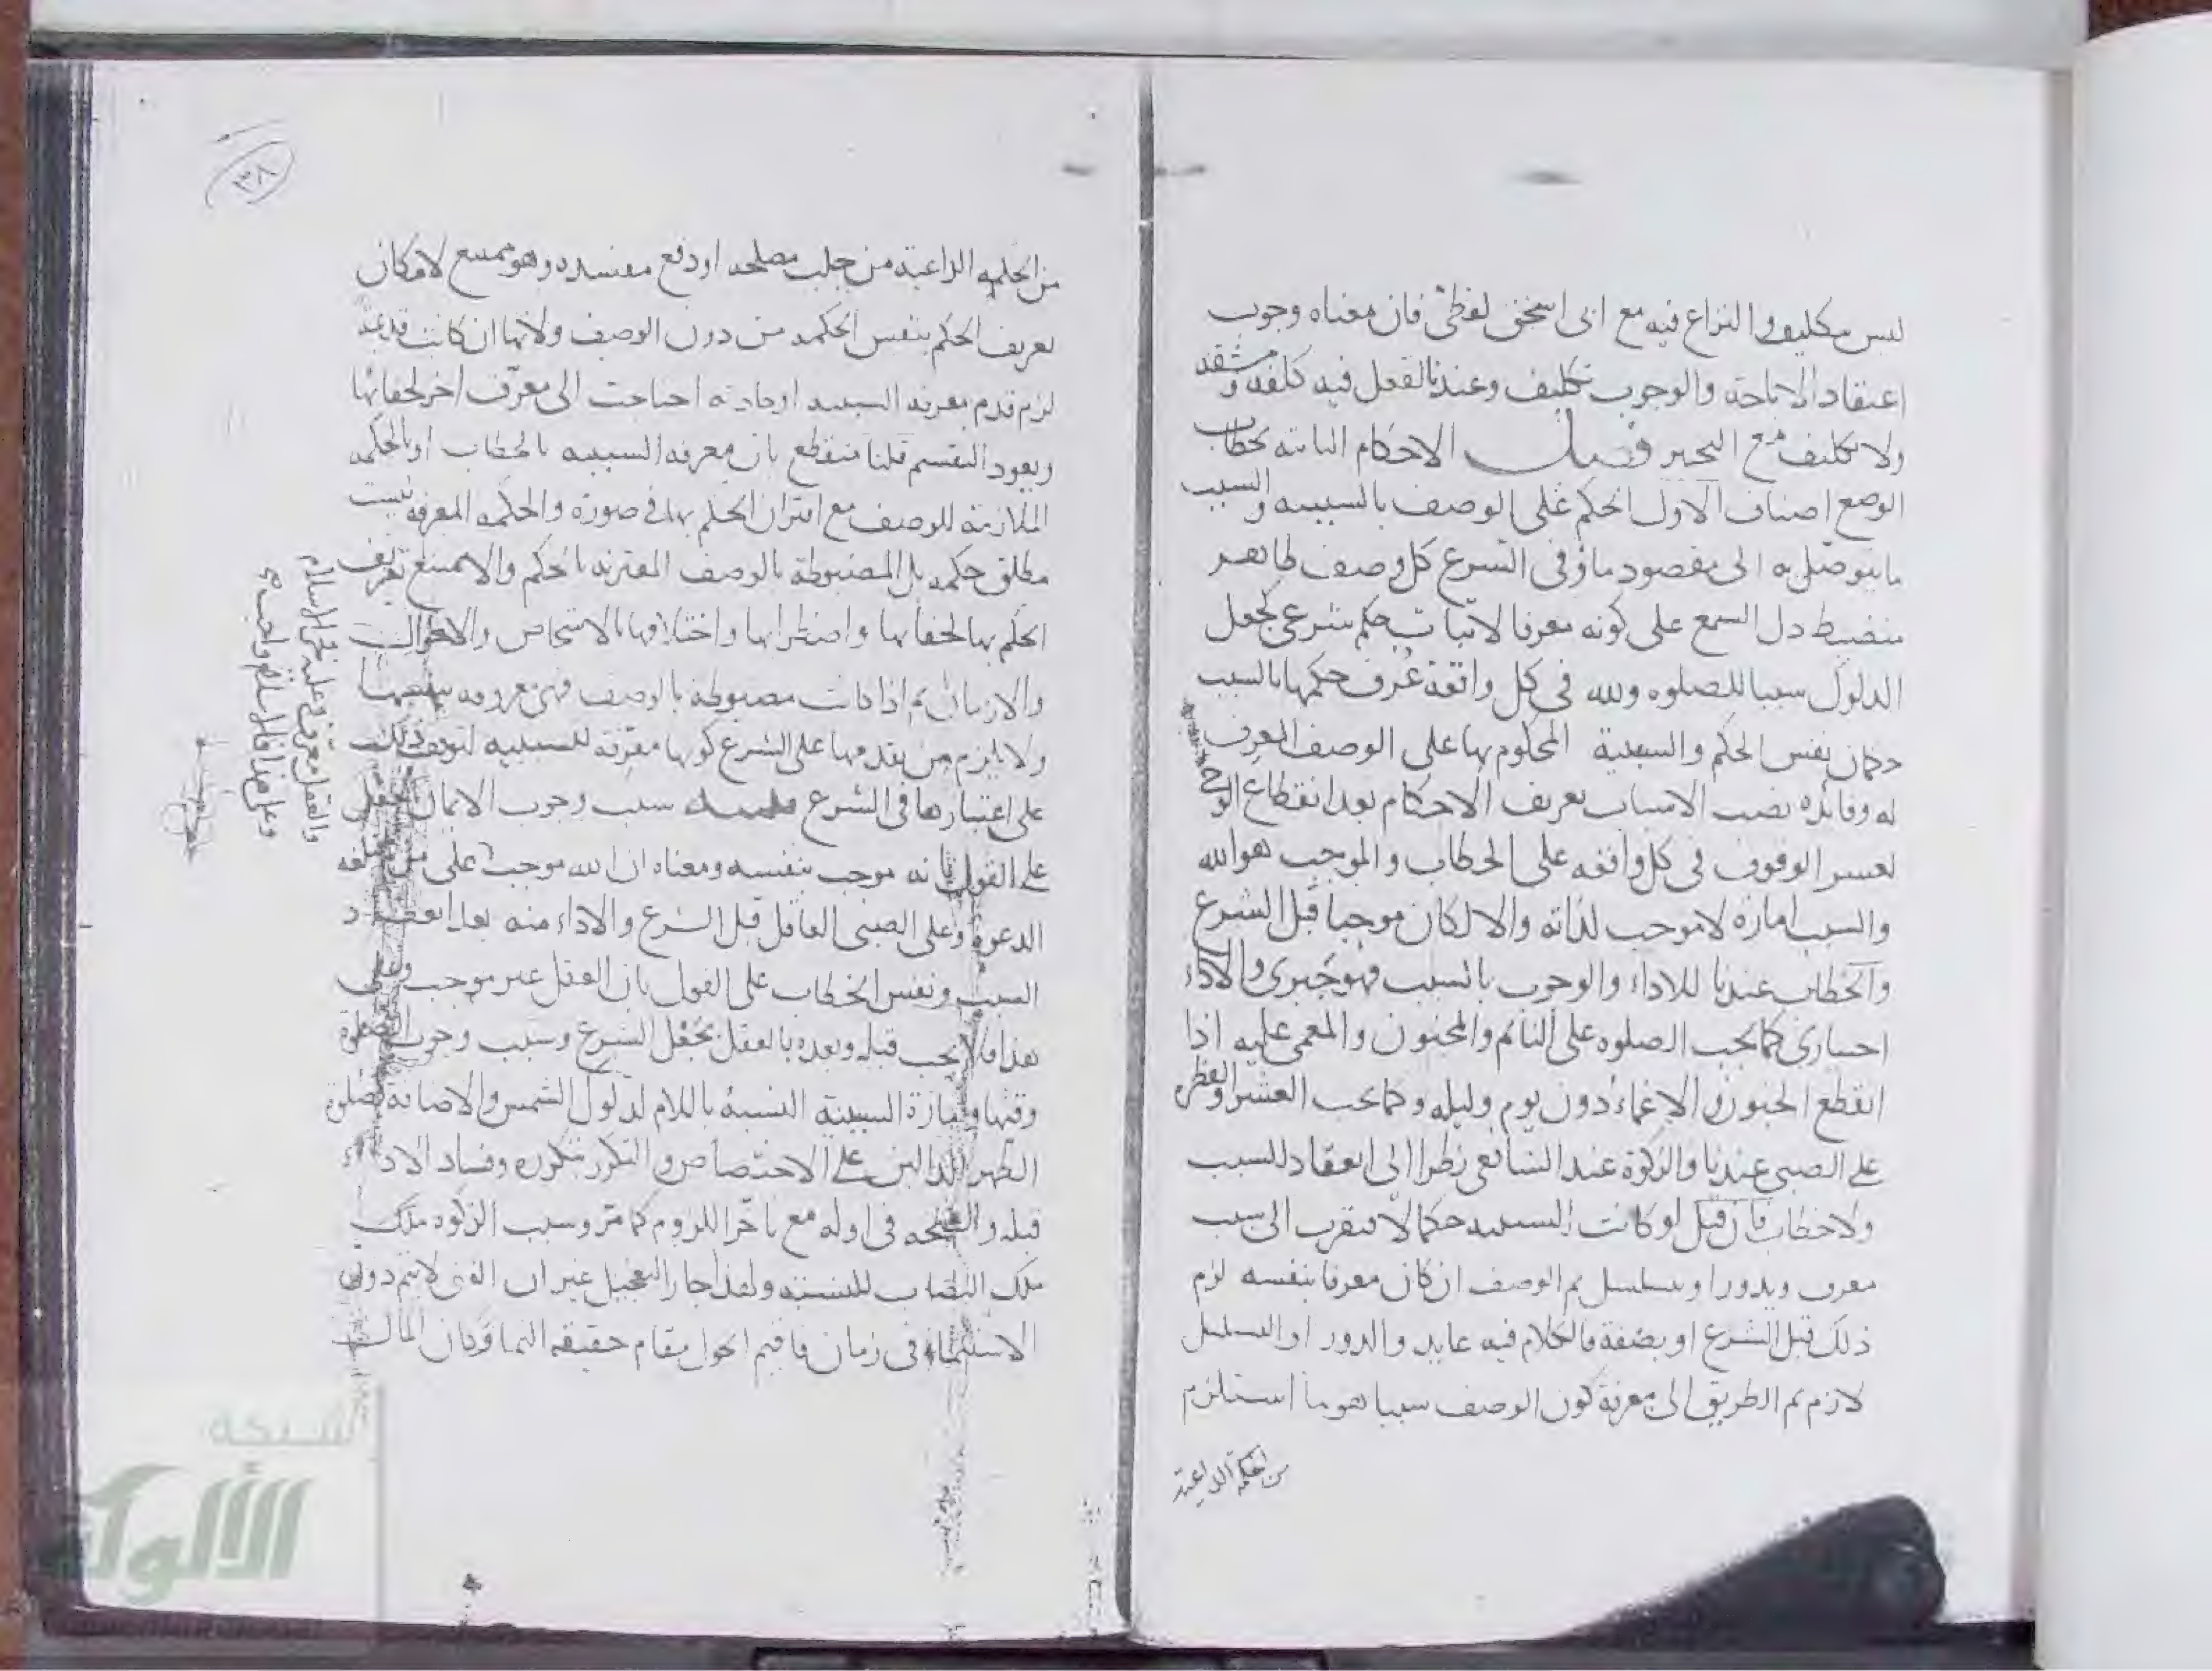 ليس بتكليف والنزاع فيه مع ابى اسحق لفظى فان معناه وجوب
اعتقاد الاباحة والوجوب تكليف وعندنا الفعل فيه كلفة ومشقة
ولا تكليف مع التخيير فصل الاحكام الثابتة بخطاب
الوضع اصناف الاول الحكم على الوصف بالسببية والسبب
ما يتوصل به الى مقصود ما وفى الشرع كل وصف ظاهر
منضبط دل السمع على كونه معرفا لاثبات حكم شرعى كجعل
الدلوك سببا للصلوة ولله فى كل واقعة عرف حكمها بالسبب
حكمان نفس الحكم والسببية المحكوم بها على الوصف المعرف
له وفائدة نصب الاسباب تعريف الاحكام بعد انقطاع الوحى
لعسر الوقوف فى كل واقعة على الخطاب والموجب هو الله
والسبب امارة لا موجب لذاته والا لكان موجبا قبل الشرع
والخطاب عندنا للاداء والوجوب بالسبب فهو جبرى والاداء
اختيارى كما يجب الصلوة على النائم والمجنون والمغمى عليه اذا
انقطع الجنون والاغماء دون يوم وليلة وكما يجب العشر والفطرة
على الصبى عندنا والزكوة عند الشافعى نظرا الى انعقاد السبب
ولا خطاب فان قيل لو كانت السببية حكما لافتقرت الى سبب
معرف ويدور او يتسلسل ثم الوصف ان كان معرفا بنفسه لزم
ذلك قبل الشرع او بصفة فالكلام فيه عايد والدور او التسلسل
لازم ثم الطريق الى معرفة كون الوصف سببا هو ما استلزم
من الحكمة الداعية
٣٨
من الحكمة الداعية من جلب مصلحة او دفع مفسدة وهو ممتنع لامكان
تعريف الحكم بنفس الحكمة من دون الوصف ولانها ان كانت قديمة
لزم قدم معرفة السببية او حادثة احتاجت الى معرف اخر لخفائها
ويعود التقسيم قلنا منقطع بان معرفة السببية بالخطاب او بالحكمة
الملازمة للوصف مع اقتران الحكم بها فى صورة والحكمة المعرفة ليست
مطلق حكمة بل المضبوطة بالوصف المقترنة بالحكم والا متنع تعريف
الحكم بها لخفائها واضطرابها واختلافها بالاشخاص والاحوال
والازمان ثم اذا كانت مضبوطة بالوصف فهى معروفة بنفسها
ولا يلزم من تقدمها على الشرع كونها معرفة للسببية لتوقف ذلك
على اعتبارها فى الشرع سبب وجوب الايمان العقل
على القول بانه موجب بنفسه ومعناه ان الله موجب على من لم تبلغه
الدعوة وعلى الصبى العاقل قبل الشرع والاداء منه بعد انعقاد
السبب ونفس الخطاب على القول بان العقل غير موجب وعلى
هذا فلا يجب قبله وبعده بالعقل بجعل الشرع وسبب وجوب الصلوة
وقتها وامارة السببية النسبة باللام لدلوك الشمس والاضافة كصلوة
الظهر الدالين على الاختصاص والتكرر بتكرره وفساد الاداء
قبله والصحة فى اوله مع تاخر اللزوم كما مر وسبب الزكوة ملك
ملك النصاب للنسبة ولهذا جاز التعجيل غير ان الغنى لا يتم دون
الاستنماء فى زمان فاقيم الحول مقام حقيقة النما وكان المال
والعقل معرف وعليه فخر الاسلام
وعلى هذا فالاسلام واجب
شبكة
الألوكة